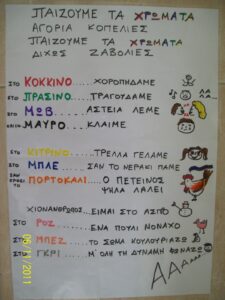 ΠΑΙΖΟΥΜΕ ΤΑ ΧΡΩΜΑΤΑ
ΑΓΟΡΙΑ ΚΟΠΕΛΙΕΣ
ΠΑΙΖΟΥΜΕ ΤΑ ΧΡΩΜΑΤΑ
ΔΙΧΩΣ ΖΑΒΟΛΙΕΣ
ΣΤΟ ΚΟΚΚΙΝΟ.....ΧΟΡΟΠΗΔΑΜΕ
ΣΤΟ ΠΡΑΣΙΝΟ....ΤΡΑΓΟΥΔΑΜΕ
ΣΤΟ ΜΩΒ......ΑΣΤΕΙΑ ΛΕΜΕ
ΜΑΥΡΟ....ΚΛΑΙΜΕ
ΣΤΟ ΚΙΤΡΙΝΟ.....ΤΡΕΛΛΑ ΓΕΛΑΜΕ
ΣΤΟ ΜΠΛΕ.....ΣΑΝ ΤΟ ΝΕΡΑΚΙ ΠΑΜΕ
ΠΟΡΤΟΚΑΛΙ....Ο ΠΕΤΕΙΝΟΣ
ΨΗΛΑ ΛΑΛΕΙ
ΧΙΟΝΑΝΘΡΩΠΟΣ...ΕΙΜΑΙ ΣΤΟ ΑΣΠΡΟ
ΣΤΟ ΡΟΖ.....ΕΝΑ ΠΟΥΛΙ ΜΟΝΑΧΟ
ΣΤΟ ΜΠΕΖ.....ΤΟ ΣΩΜΑ ΚΟΥΛΟΥΡΙΑΖΩ
ΣΤΟ ΓΚΡΙ.....Μ' ΟΛΗ ΤΗ ΔΥΝΑΜΗ ΦΩΝΑΖΩ
ΑΑΑ